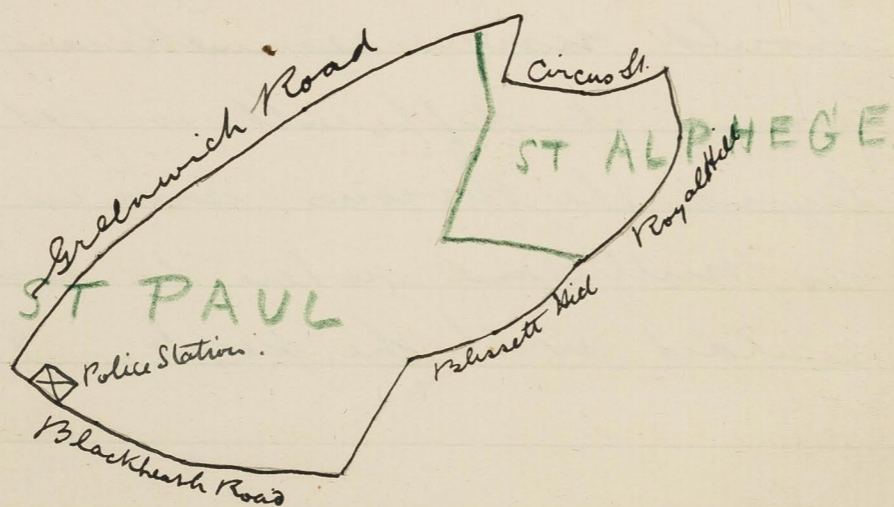 Greenwich Road
Circus St.
ST ALPHEGE
Royal Hill
ST PAUL
Blissett Hill
Police Station.
Blackheath Road